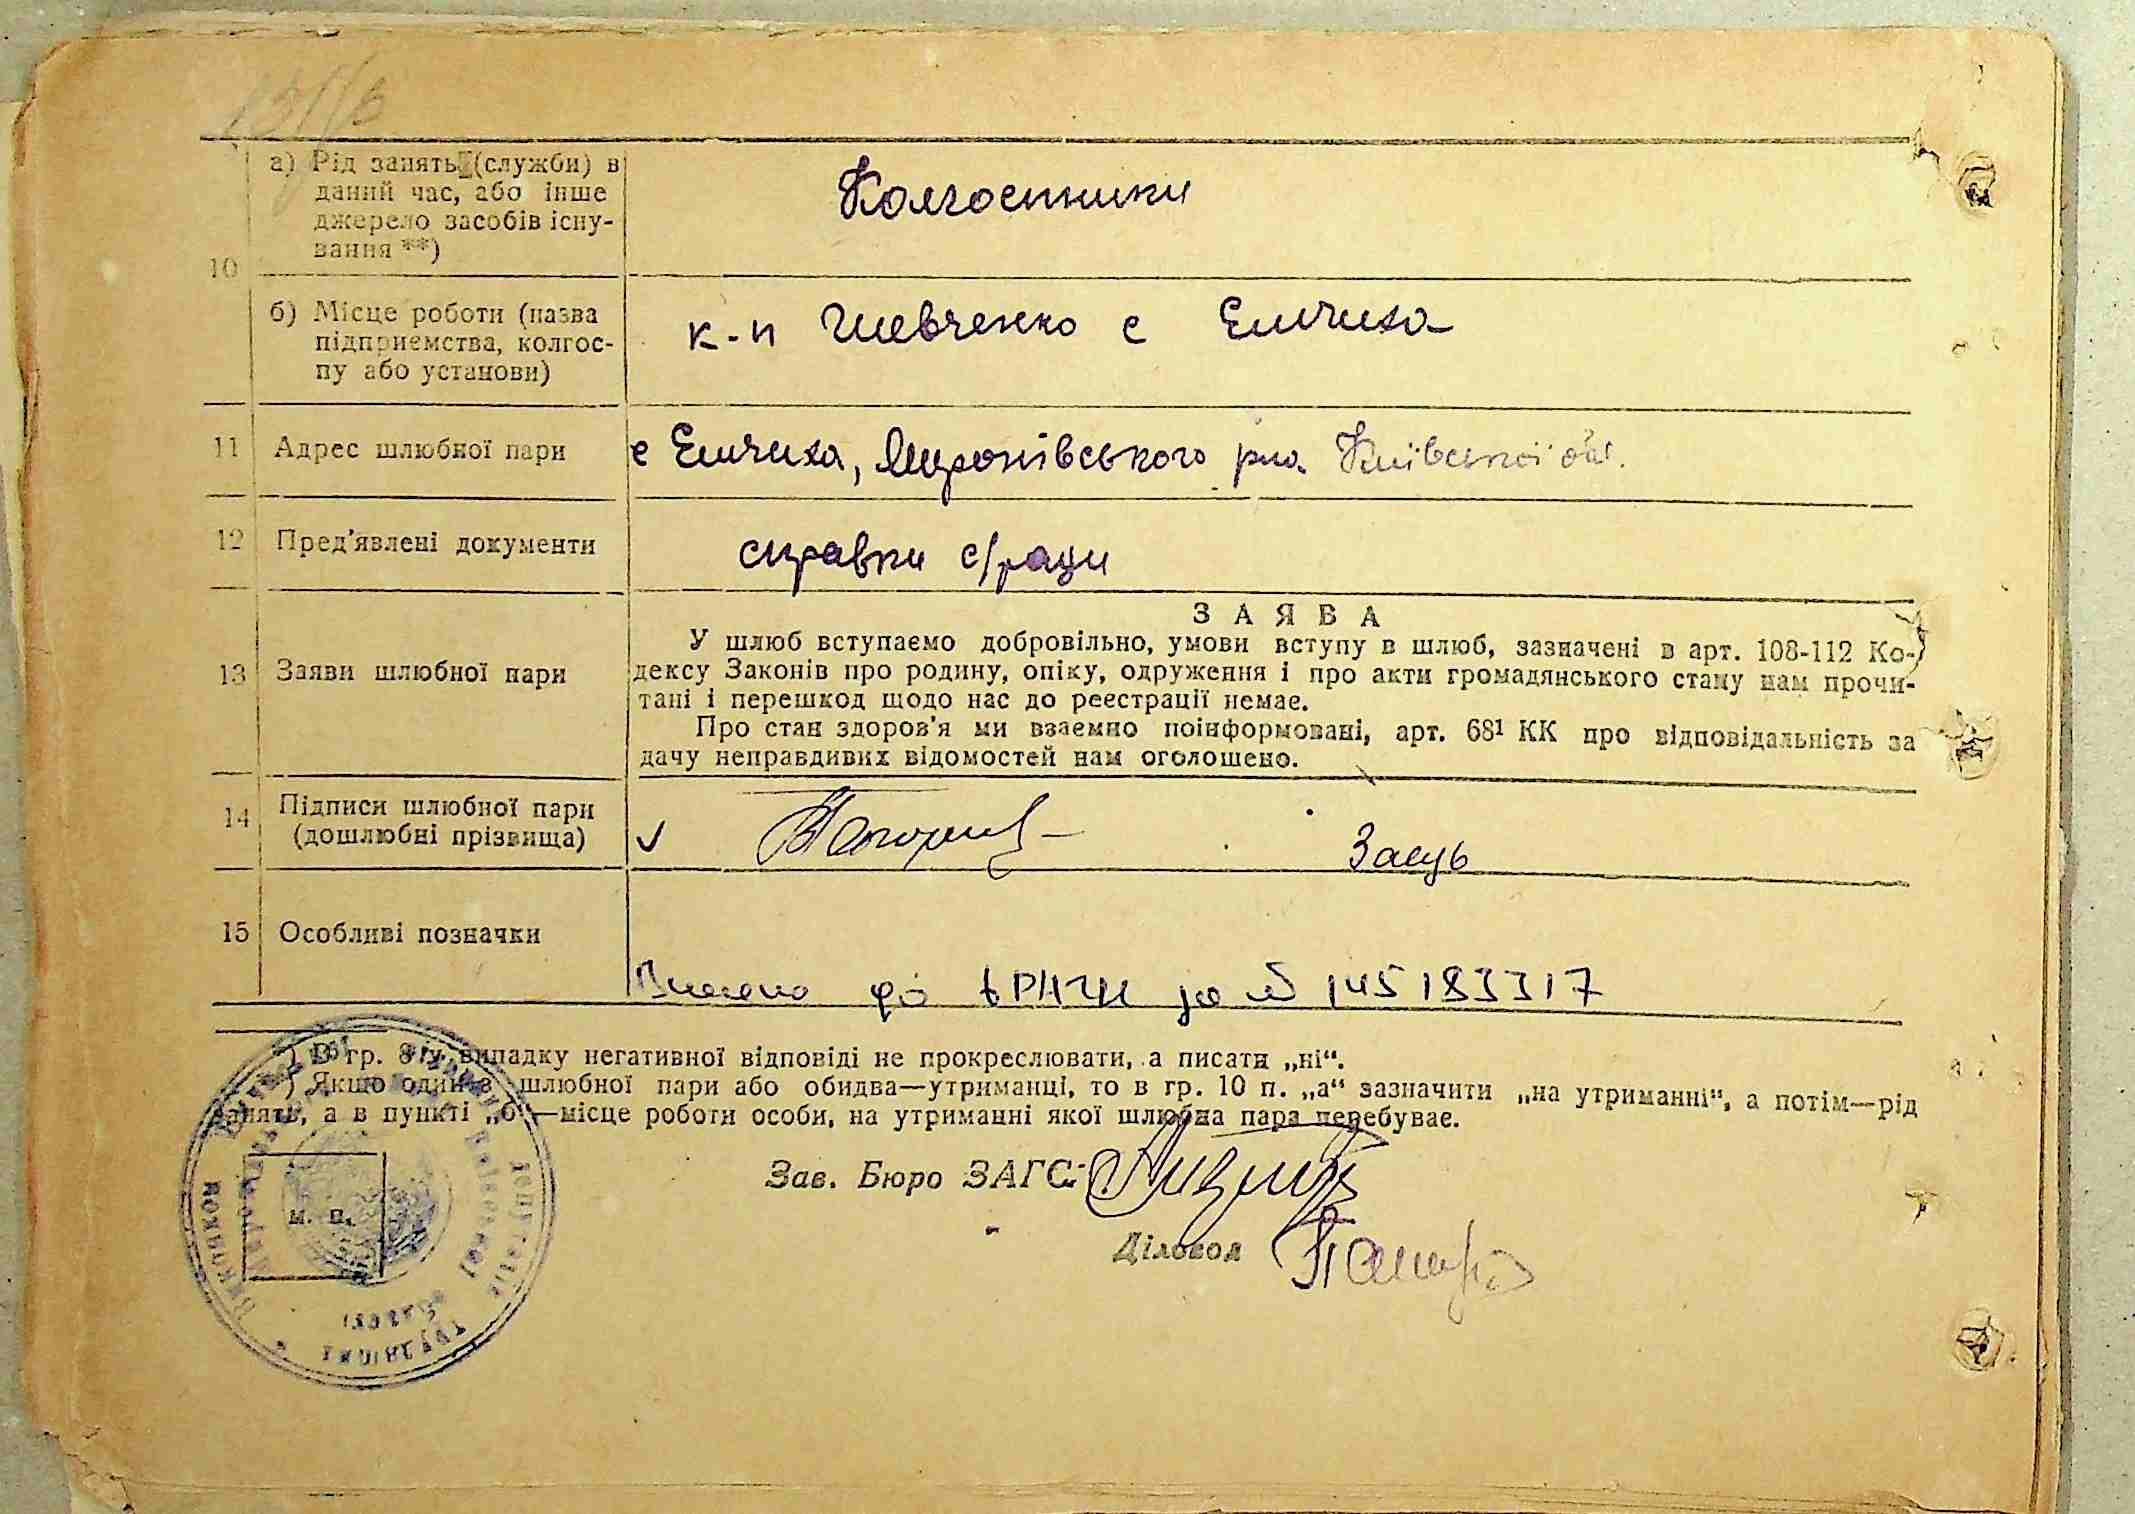 а) Рід занять (службн) в
даний час, або інше
джерело засобів існу-
вання **)
Колгоспники
10
б) Місце роботи (назва
підприємства, колгос-
пу або установи)
к-п Шевченко с Емчиха
11 Адрес шлюбної пари
с Емчиха, Миронівського р-на Київської обл.
12 Пред'явлені документи
справки с/ради
13 Заяви шлюбної пари
ЗАЯВА
У шлюб вступаємо добровільно, умови вступу в шлюб, зазначені в арт. 108-112 Ко-
дексу Законів про родину, опіку, одруження і про акти громадянського стану нам прочи-
тані і перешкод щодо нас до реєстрації немає.
Про стан здоров'я ми взаємно поінформовані, арт. 68¹ КК про відповідальність за
дачу неправдивих відомостей нам оголошено.
14 Підписи шлюбної пари
(дошлюбні прізвища)
Заєць
15 Особливі позначки
Внесено до за № 145183317
*) В гр. 8 у випадку негативної відповіді не прокреслювати, а писати „ні“.
**) Якщо один з шлюбної пари або обидва—утриманці, то в гр. 10 п. „а“ зазначити „на утриманні“, а потім—рід
занять, а в пункті „б“—місце роботи особи, на утриманні якої шлюбна пара перебуває.
Зав. Бюро ЗАГС
Діловод
м. п.
Київської
області
депутатів
трудящих